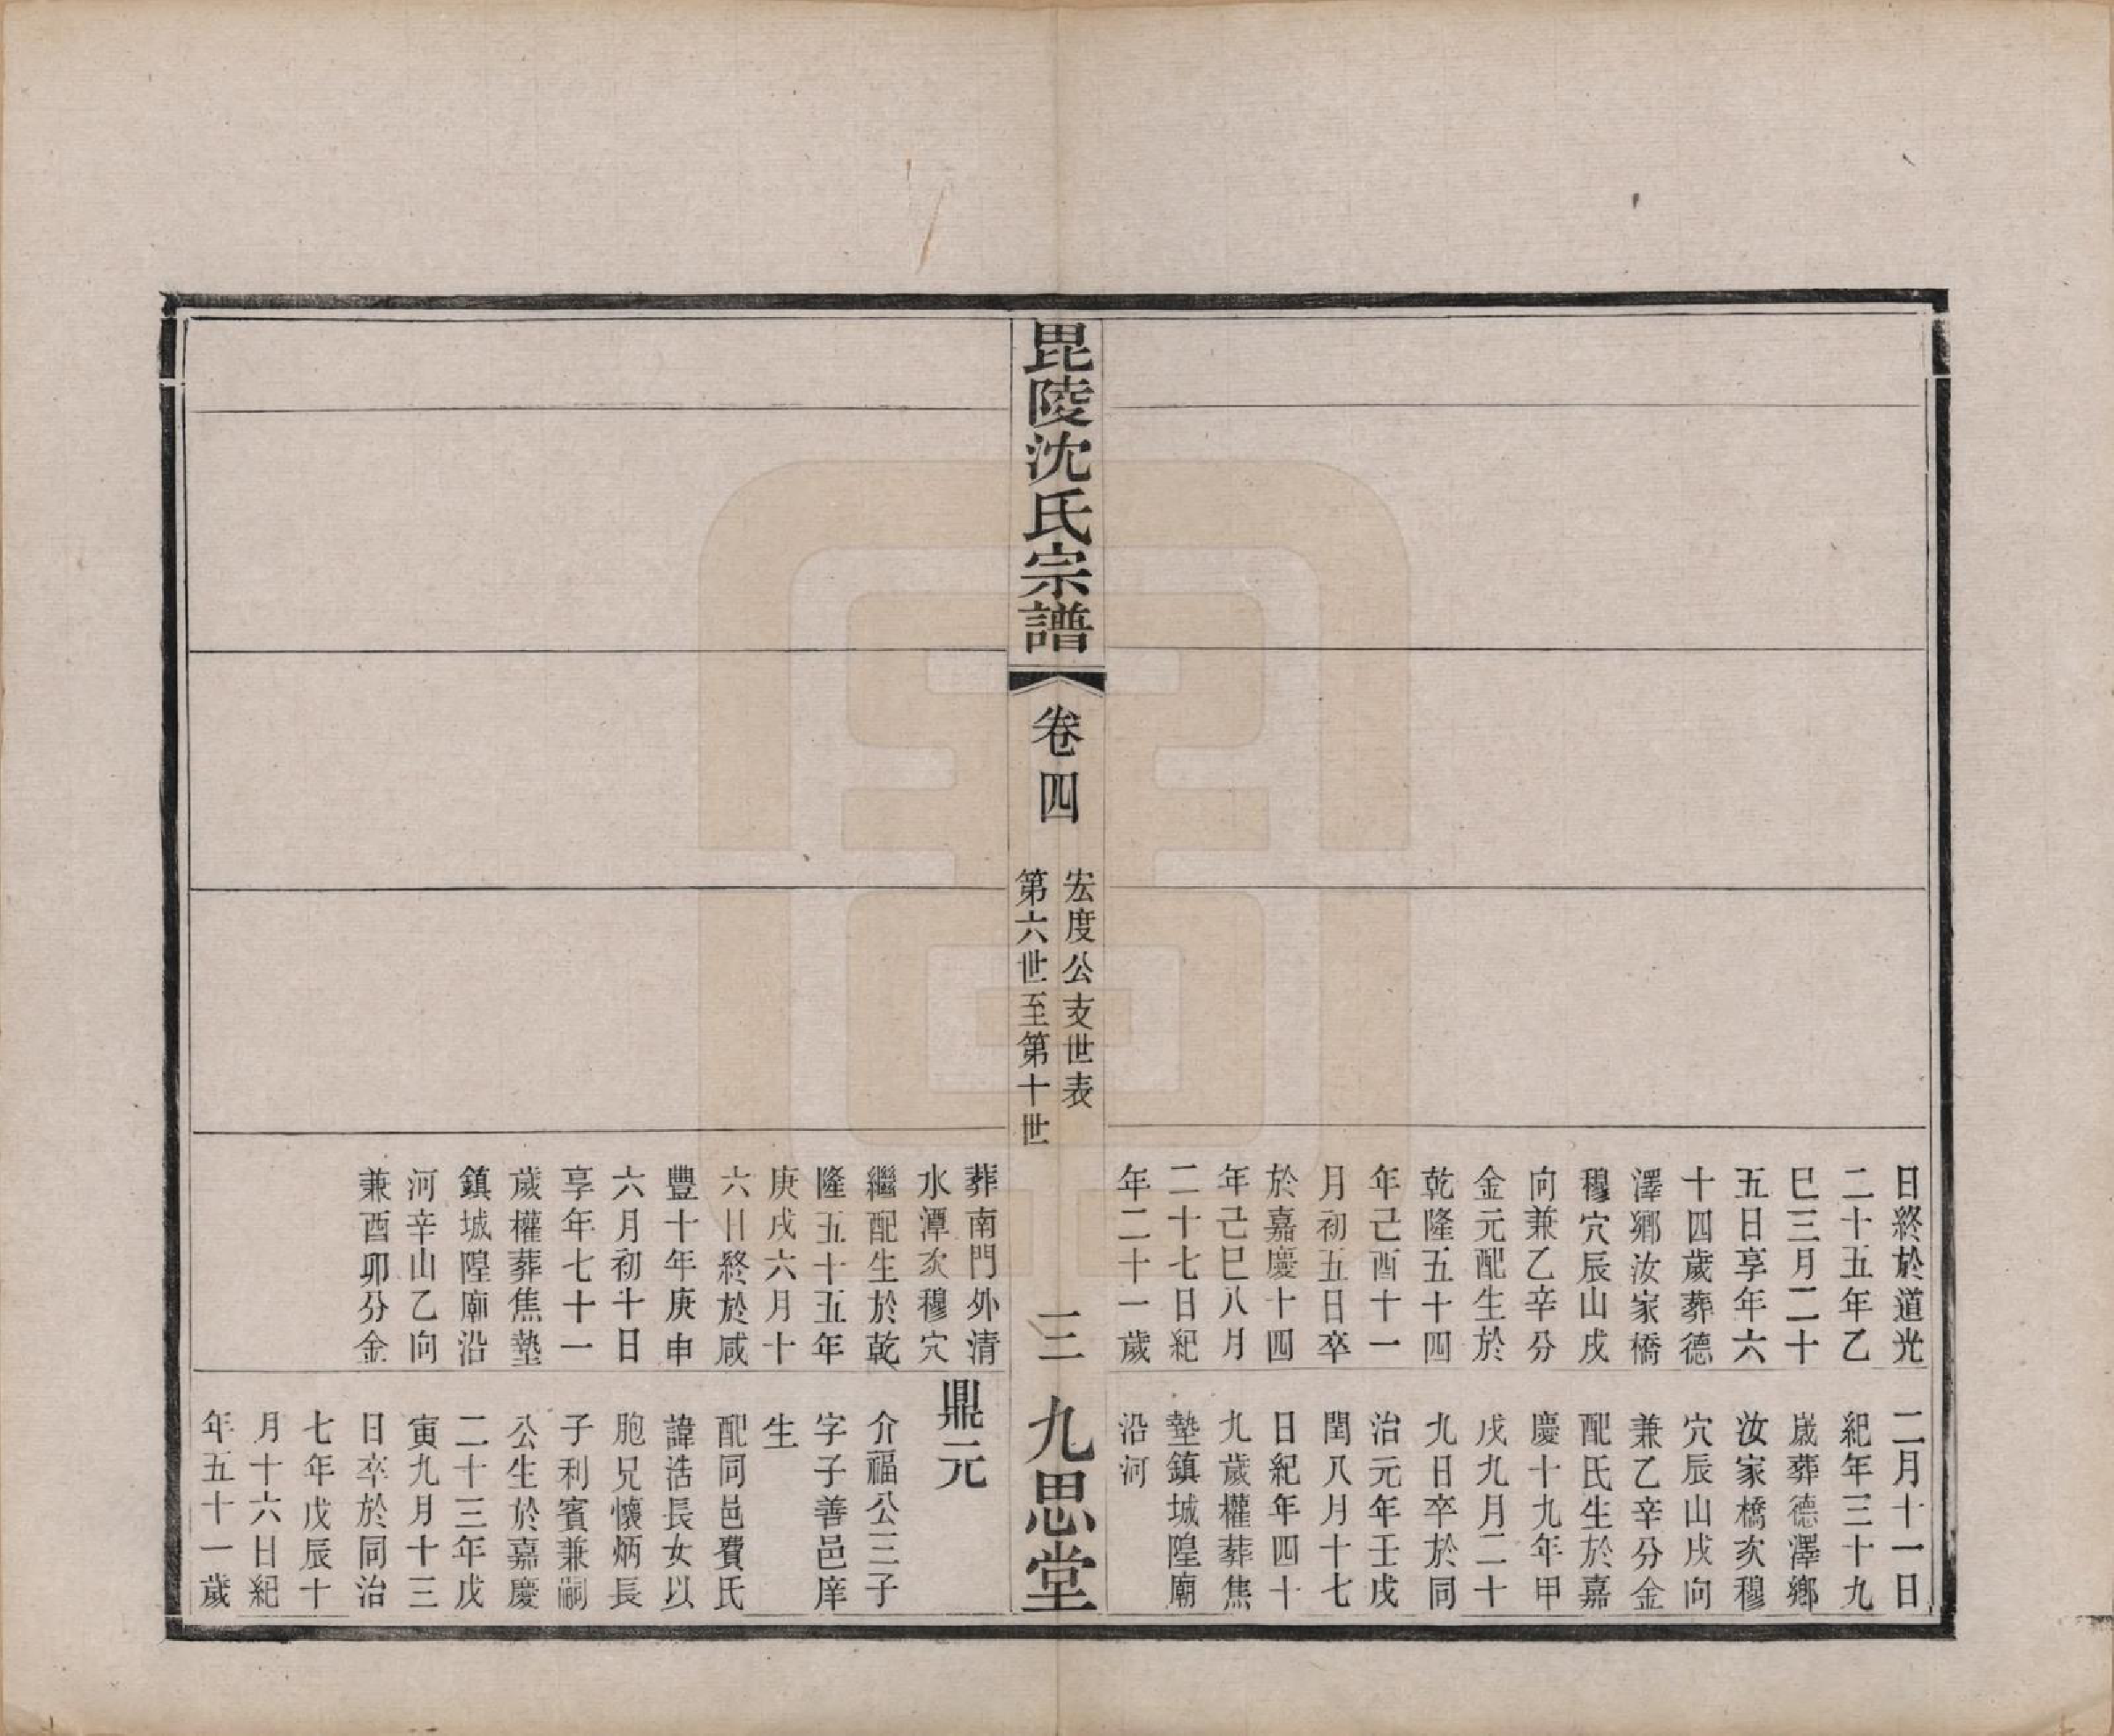 日終於道光
二十五年乙
巳三月二十
五日享年六
十四歲葬德
澤鄉汝家橋
穆穴辰山戌
向兼乙辛分
金元配生於
乾隆五十四
年己酉十一
月初五日卒
於嘉慶十四
年己巳八月
二十七日紀
年二十一歲
二月十一日
紀年三十九
歲葬德澤鄉
汝家橋次穆
穴辰山戌向
兼乙辛分金
配氏生於嘉
慶十九年甲
戌九月二十
九日卒於同
治元年壬戌
閏八月十七
日紀年四十
九歲權葬焦
墊鎮城隍廟
沿河
毘陵沈氏宗譜
卷四
宏度公支世表
第六世至第十世
三
九思堂
葬南門外清
水潭次穆穴
繼配生於乾
隆五十五年
庚戌六月十
六日終於咸
豐十年庚申
六月初十日
享年七十一
歲權葬焦墊
鎮城隍廟沿
河辛山乙向
兼酉卯分金
鼎元
介福公三子
字子善邑庠
生
配同邑費氏
諱浩長女以
胞兄懷炳長
子利賓兼嗣
公生於嘉慶
二十三年戊
寅九月十三
日卒於同治
七年戊辰十
月十六日紀
年五十一歲